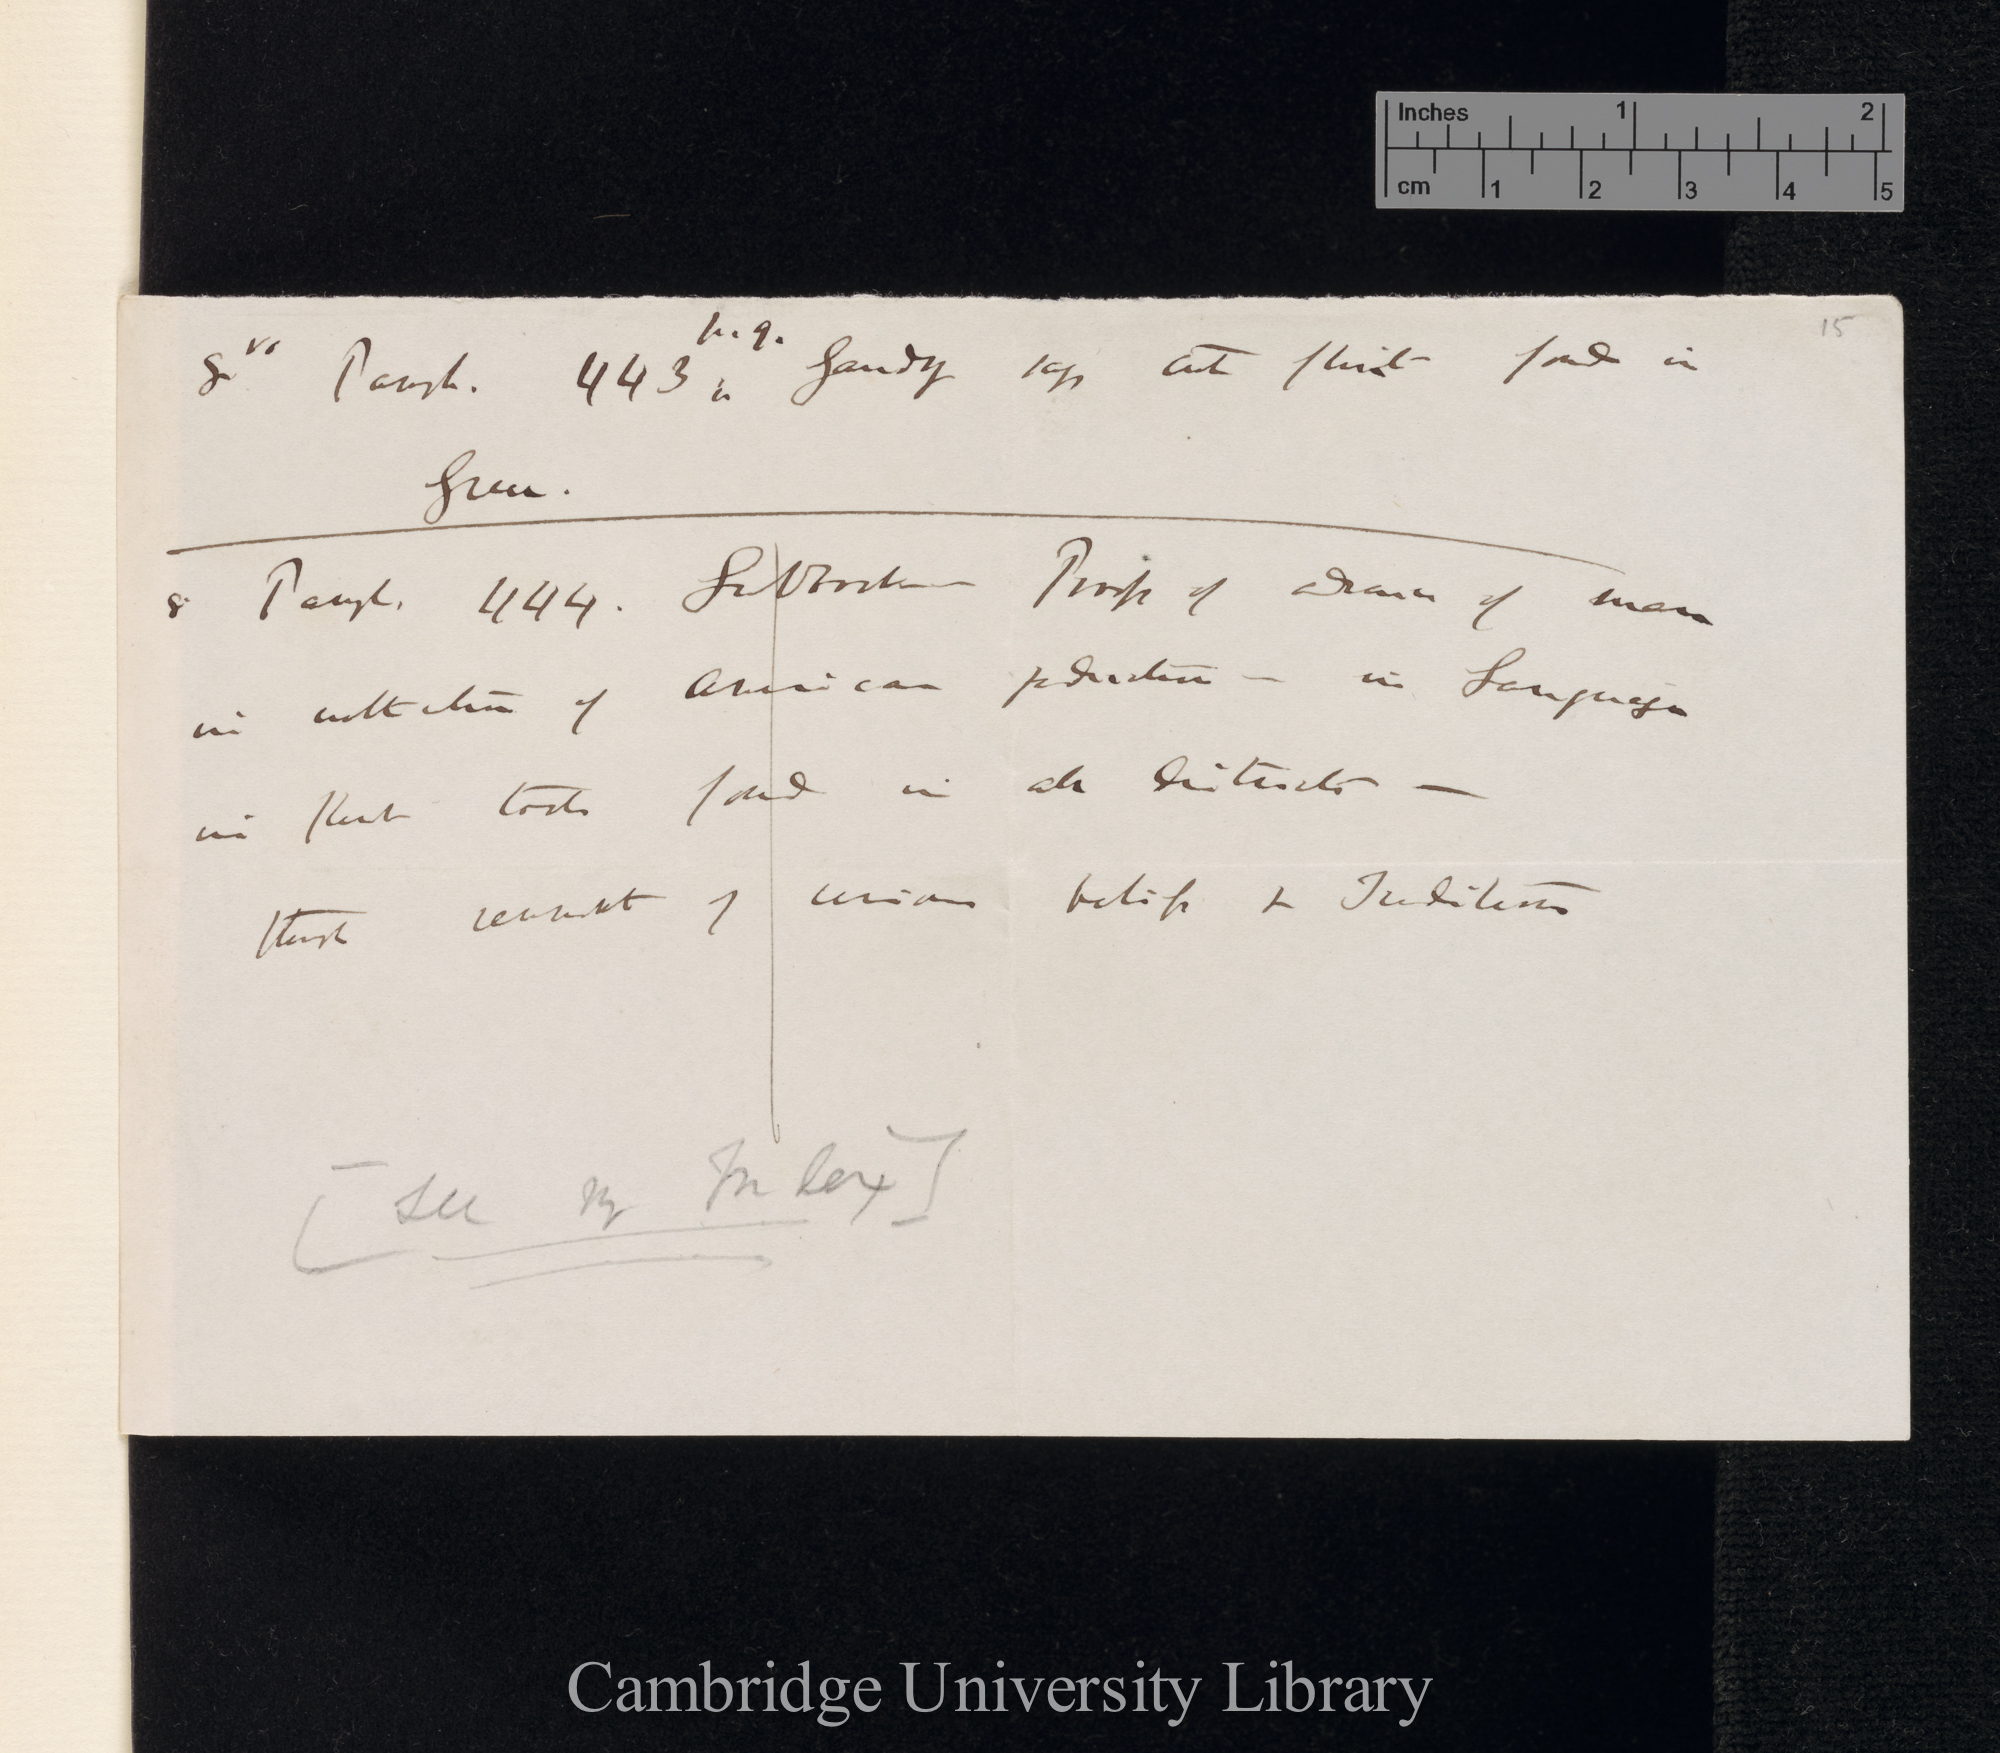 Inches 1 2
cm 1 2 3 4 5
15
8vo Pamph. 443, p. 9. Gaudry says cut flints found in
Greece.
8 Pamph. 444. Lubbock Proofs of advance of man
in cultivation of American productions — in Languages
in flint tools found in all districts —
through remnants of various beliefs & Traditions
[See my Index]
Cambridge University Library